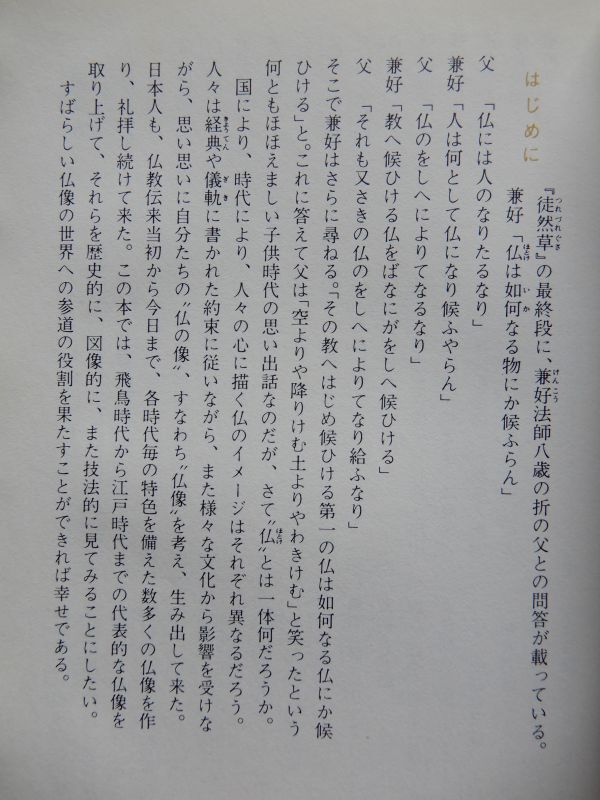 はじめに
『徒然草』の最終段に、兼好法師八歳の折の父との問答が載っている。
兼好「仏は如何なる物にか候ふらん」
父　「仏には人のなりたるなり」
兼好「人は何として仏になり候ふやらん」
父　「仏のをしへによりてなるなり」
兼好「教へ候ひける仏をばなにがをしへ候ひける」
父　「それも又さきの仏のをしへによりてなり給ふなり」
そこで兼好はさらに尋ねる。「その教へはじめ候ひける第一の仏は如何なる仏にか候
ひける」と。これに答えて父は「空よりや降りけむ土よりやわきけむ」と笑ったという
何ともほほえましい子供時代の思い出話なのだが、さて〝仏〟とは一体何だろうか。
国により、時代により、人々の心に描く仏のイメージはそれぞれ異なるだろう。
人々は経典や儀軌に書かれた約束に従いながら、また様々な文化から影響を受けな
がら、思い思いに自分たちの〝仏の像〟、すなわち〝仏像〟を考え、生み出して来た。
日本人も、仏教伝来当初から今日まで、各時代毎の特色を備えた数多くの仏像を作
り、礼拝し続けて来た。この本では、飛鳥時代から江戸時代までの代表的な仏像を
取り上げて、それらを歴史的に、図像的に、また技法的に見てみることにしたい。
すばらしい仏像の世界への参道の役割を果たすことができれば幸せである。